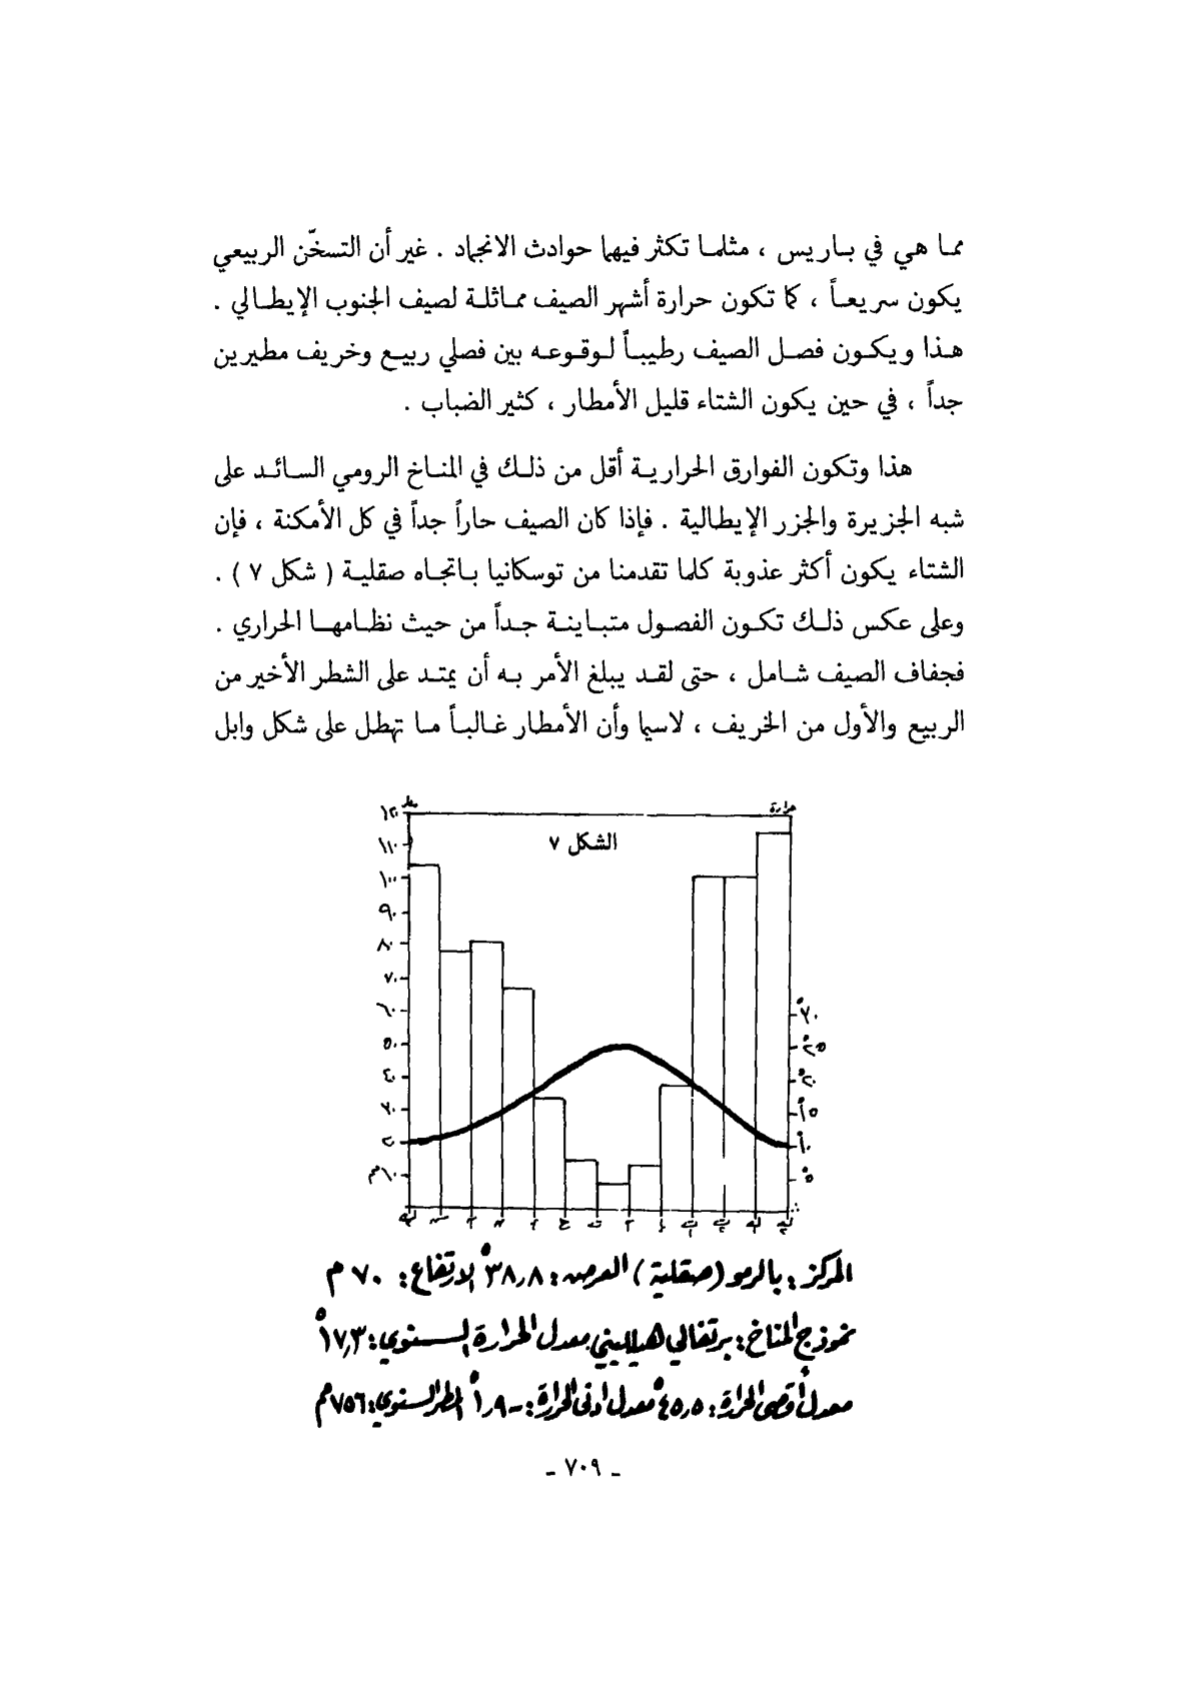 مما هي في باريس ، مثلما تكثر فيها حوادث الانجماد . غير أن التسخّن الربيعي
يكون سريعاً ، كما تكون حرارة أشهر الصيف مماثلة لصيف الجنوب الإيطالي .
هذا ويكون فصل الصيف رطيباً لوقوعه بين فصلي ربيع وخريف مطيرين
جداً ، في حين يكون الشتاء قليل الأمطار ، كثير الضباب .
هذا وتكون الفوارق الحرارية أقل من ذلك في المناخ الرومي السائد على
شبه الجزيرة والجزر الإيطالية . فإذا كان الصيف حاراً جداً في كل الأمكنة ، فإن
الشتاء يكون أكثر عذوبة كلما تقدمنا من توسكانيا باتجاه صقلية ( شكل ٧ ) .
وعلى عكس ذلك تكون الفصول متباينة جداً من حيث نظامها الحراري .
فجفاف الصيف شامل ، حتى لقد يبلغ الأمر به أن يمتد على الشطر الأخير من
الربيع والأول من الخريف ، لاسيما وأن الأمطار غالباً ما تهطل على شكل وابل
حرارة
الشكل ٧
١٢٠
١١٠
١٠٠
٩٠
٨٠
٧٠
٦٠
٥٠
٤٠
٣٠
٢٠
٣٠°
٢٥°
٢٠°
١٥°
١٠°
٥°
المركز : بالرمو (صقلية) العرض : ٣٨,٨° الارتفاع : ٧٠ م
نموذج المناخ : برتغالي هيلليني معدل الحرارة السنوي : ١٧,٣°
معدل أقصى الحرارة : ٤٥,٥° معدل ادنى الحرارة : -١,٩° المطر السنوي : ٧٥٦م
- ٧٠٩ -